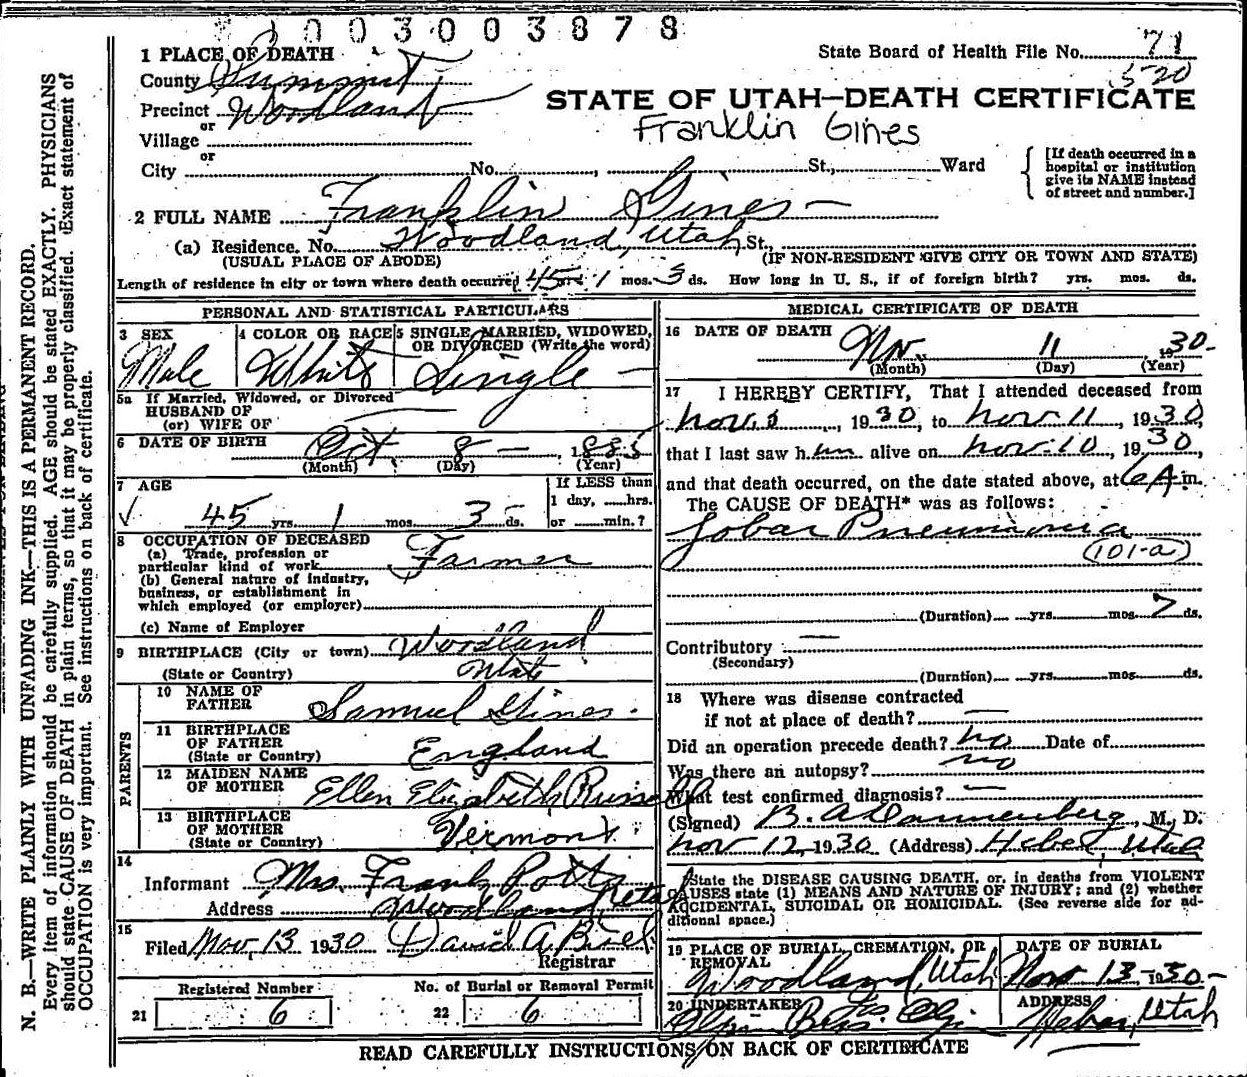 003003878
1 PLACE OF DEATH
State Board of Health File No. 71
520
County Summit
Precinct Woodland
STATE OF UTAH—DEATH CERTIFICATE
or
Village
Franklin Gines
or
City No. , St., Ward
[If death occurred in a
hospital or institution
give its NAME instead
of street and number.]
2 FULL NAME Franklin Gines
(a) Residence. No. Woodland, Utah St.,
(USUAL PLACE OF ABODE) (IF NON-RESIDENT GIVE CITY OR TOWN AND STATE)
Length of residence in city or town where death occurred 45 yrs 1 mos. 3 ds. How long in U. S., if of foreign birth? yrs. mos. ds.
PERSONAL AND STATISTICAL PARTICULARS
3 SEX 4 COLOR OR RACE 5 SINGLE, MARRIED, WIDOWED,
OR DIVORCED (Write the word)
Male White Single
5a If Married, Widowed, or Divorced
HUSBAND OF
(or) WIFE OF
6 DATE OF BIRTH Oct. 8 — , 1885
(Month) (Day) (Year)
7 AGE If LESS than
1 day, hrs.
45 yrs. 1 mos. 3 ds. or min.?
8 OCCUPATION OF DECEASED
(a) Trade, profession or
particular kind of work Farmer
(b) General nature of industry,
business, or establishment in
which employed (or employer)
(c) Name of Employer
9 BIRTHPLACE (City or town) Woodland
(State or Country) Utah
PARENTS
10 NAME OF
FATHER Samuel Gines.
11 BIRTHPLACE
OF FATHER England
(State or Country)
12 MAIDEN NAME
OF MOTHER Ellen Elizabeth Russell
13 BIRTHPLACE
OF MOTHER Vermont
(State or Country)
14
Informant Mrs. Frank Potts
Address Woodland, Utah
15
Filed Nov. 13 1930 David A.
Registrar
Registered Number No. of Burial or Removal Permit
21 6 22 6
MEDICAL CERTIFICATE OF DEATH
16 DATE OF DEATH
Nov. 11 , 1930
(Month) (Day) (Year)
17 I HEREBY CERTIFY, That I attended deceased from
Nov. , 1930, to Nov. 11, 1930,
that I last saw him alive on Nov. 10, 1930,
and that death occurred, on the date stated above, at 6 A m.
The CAUSE OF DEATH* was as follows:
Lobar Pneumonia
(101-a)
(Duration) yrs. mos. 7 ds.
Contributory —
(Secondary)
(Duration) yrs. mos. ds.
18 Where was disease contracted
if not at place of death? —
Did an operation precede death? no Date of
Was there an autopsy? no
What test confirmed diagnosis? —
(Signed) B. A. Dannenberg, M. D.
Nov 12, 1930 (Address) Heber, Utah
*State the DISEASE CAUSING DEATH, or, in deaths from VIOLENT
CAUSES state (1) MEANS AND NATURE OF INJURY; and (2) whether
ACCIDENTAL, SUICIDAL OR HOMICIDAL. (See reverse side for ad-
ditional space.)
19 PLACE OF BURIAL, CREMATION, OR
REMOVAL
Woodland, Utah
DATE OF BURIAL
Nov 13, 1930
20 UNDERTAKER
ADDRESS
Heber, Utah
READ CAREFULLY INSTRUCTIONS ON BACK OF CERTIFICATE
N. B.—WRITE PLAINLY WITH UNFADING INK—THIS IS A PERMANENT RECORD.
Every item of information should be carefully supplied. AGE should be stated EXACTLY. PHYSICIANS
should state CAUSE OF DEATH in plain terms, so that it may be properly classified. Exact statement of
OCCUPATION is very important. See instructions on back of certificate.